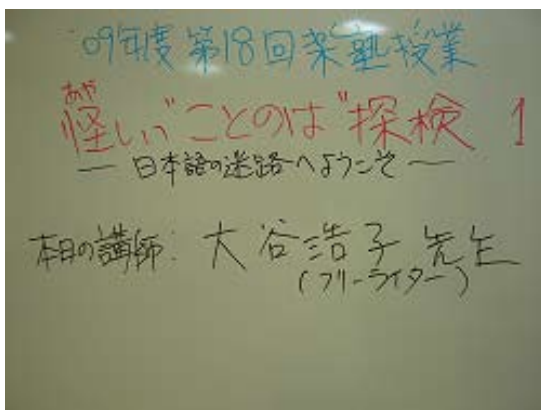 '09年度 第18回楽塾授業
あや
怪しい"ことのは"探検 1
― 日本語の迷路へようこそ ―
本日の講師: 大谷浩子先生
(フリーライター)